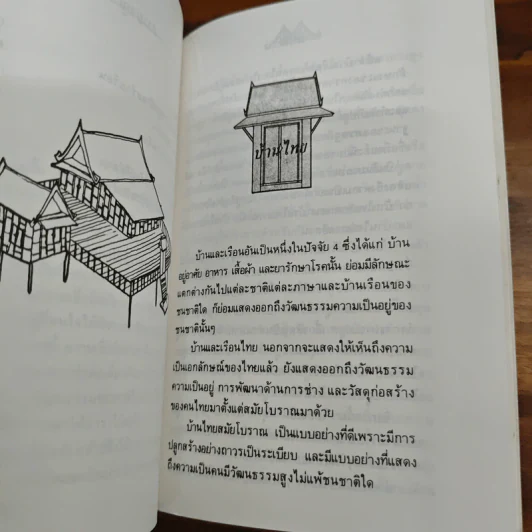 บ้านไทย
บ้านและเรือนอันเป็นหนึ่งในปัจจัย 4 ซึ่งได้แก่ บ้าน
อยู่อาศัย อาหาร เสื้อผ้า และยารักษาโรคนั้น ย่อมมีลักษณะ
แตกต่างกันไปแต่ละชาติแต่ละภาษาและบ้านเรือนของ
ชนชาติใด ก็ย่อมแสดงออกถึงวัฒนธรรมความเป็นอยู่ของ
ชนชาตินั้นๆ
บ้านและเรือนไทย นอกจากจะแสดงให้เห็นถึงความ
เป็นเอกลักษณ์ของไทยแล้ว ยังแสดงออกถึงวัฒนธรรม
ความเป็นอยู่ การพัฒนาด้านการช่าง และวัสดุก่อสร้าง
ของคนไทยมาตั้งแต่สมัยโบราณมาด้วย
บ้านไทยสมัยโบราณ เป็นแบบอย่างที่ดีเพราะมีการ
ปลูกสร้างอย่างถาวรเป็นระเบียบ และมีแบบอย่างที่แสดง
ถึงความเป็นคนมีวัฒนธรรมสูงไม่แพ้ชนชาติใด